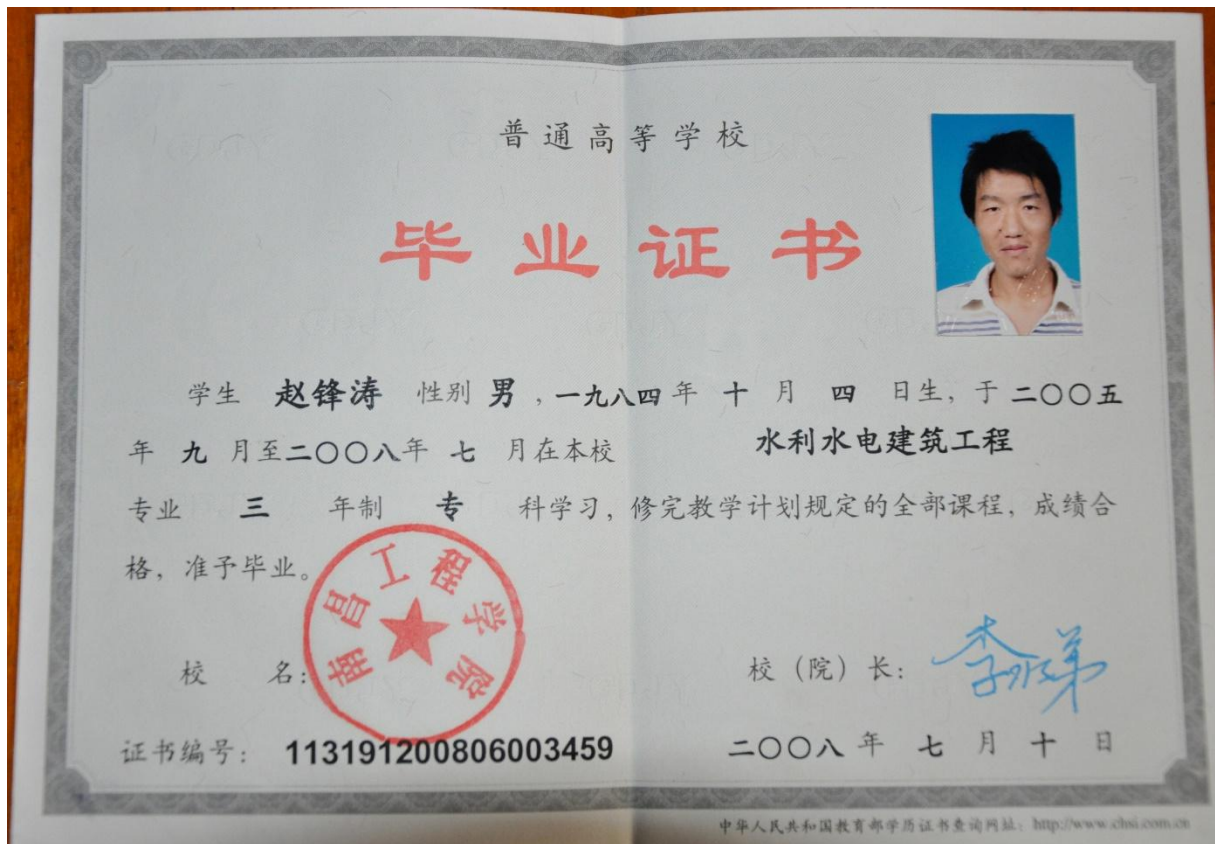 普通高等学校
毕业证书
学生 赵锋涛 性别 男，一九八四年 十 月 四 日生，于二〇〇五
年 九 月至二〇〇八年 七 月在本校 水利水电建筑工程
专业 三 年制 专 科学习，修完教学计划规定的全部课程，成绩合
格，准予毕业。
南昌工程学院
校 名：
校（院）长：
证书编号： 113191200806003459
二〇〇八 年 七 月 十 日
中华人民共和国教育部学历证书查询网址：http://www.chsi.com.cn